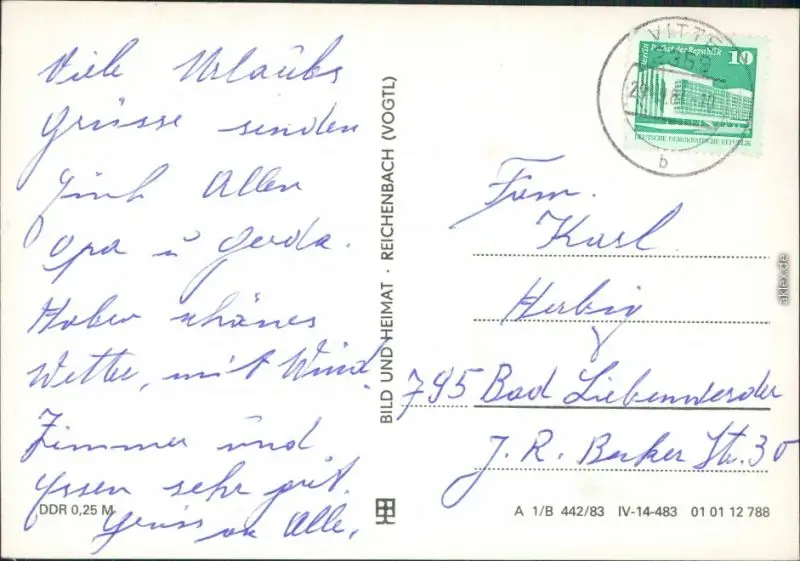 Viele Urlaubs
grüsse senden
Euch Allen
Opa u Gerda.
Haben schönes
Wetter, mit Wind.
Zimmer und
Essen sehr gut.
Gruss an Alle.
DDR 0,25 M
BILD UND HEIMAT · REICHENBACH (VOGTL)
VITTE
2359
b
Berlin Palast der Republik
10
DEUTSCHE DEMOKRATISCHE REPUBLIK
Fam.
Karl
Herbig
795 Bad Liebenwerda
J. R. Becker Str. 30
A 1/B 442/83 IV-14-483 01 01 12 788
aklex.de